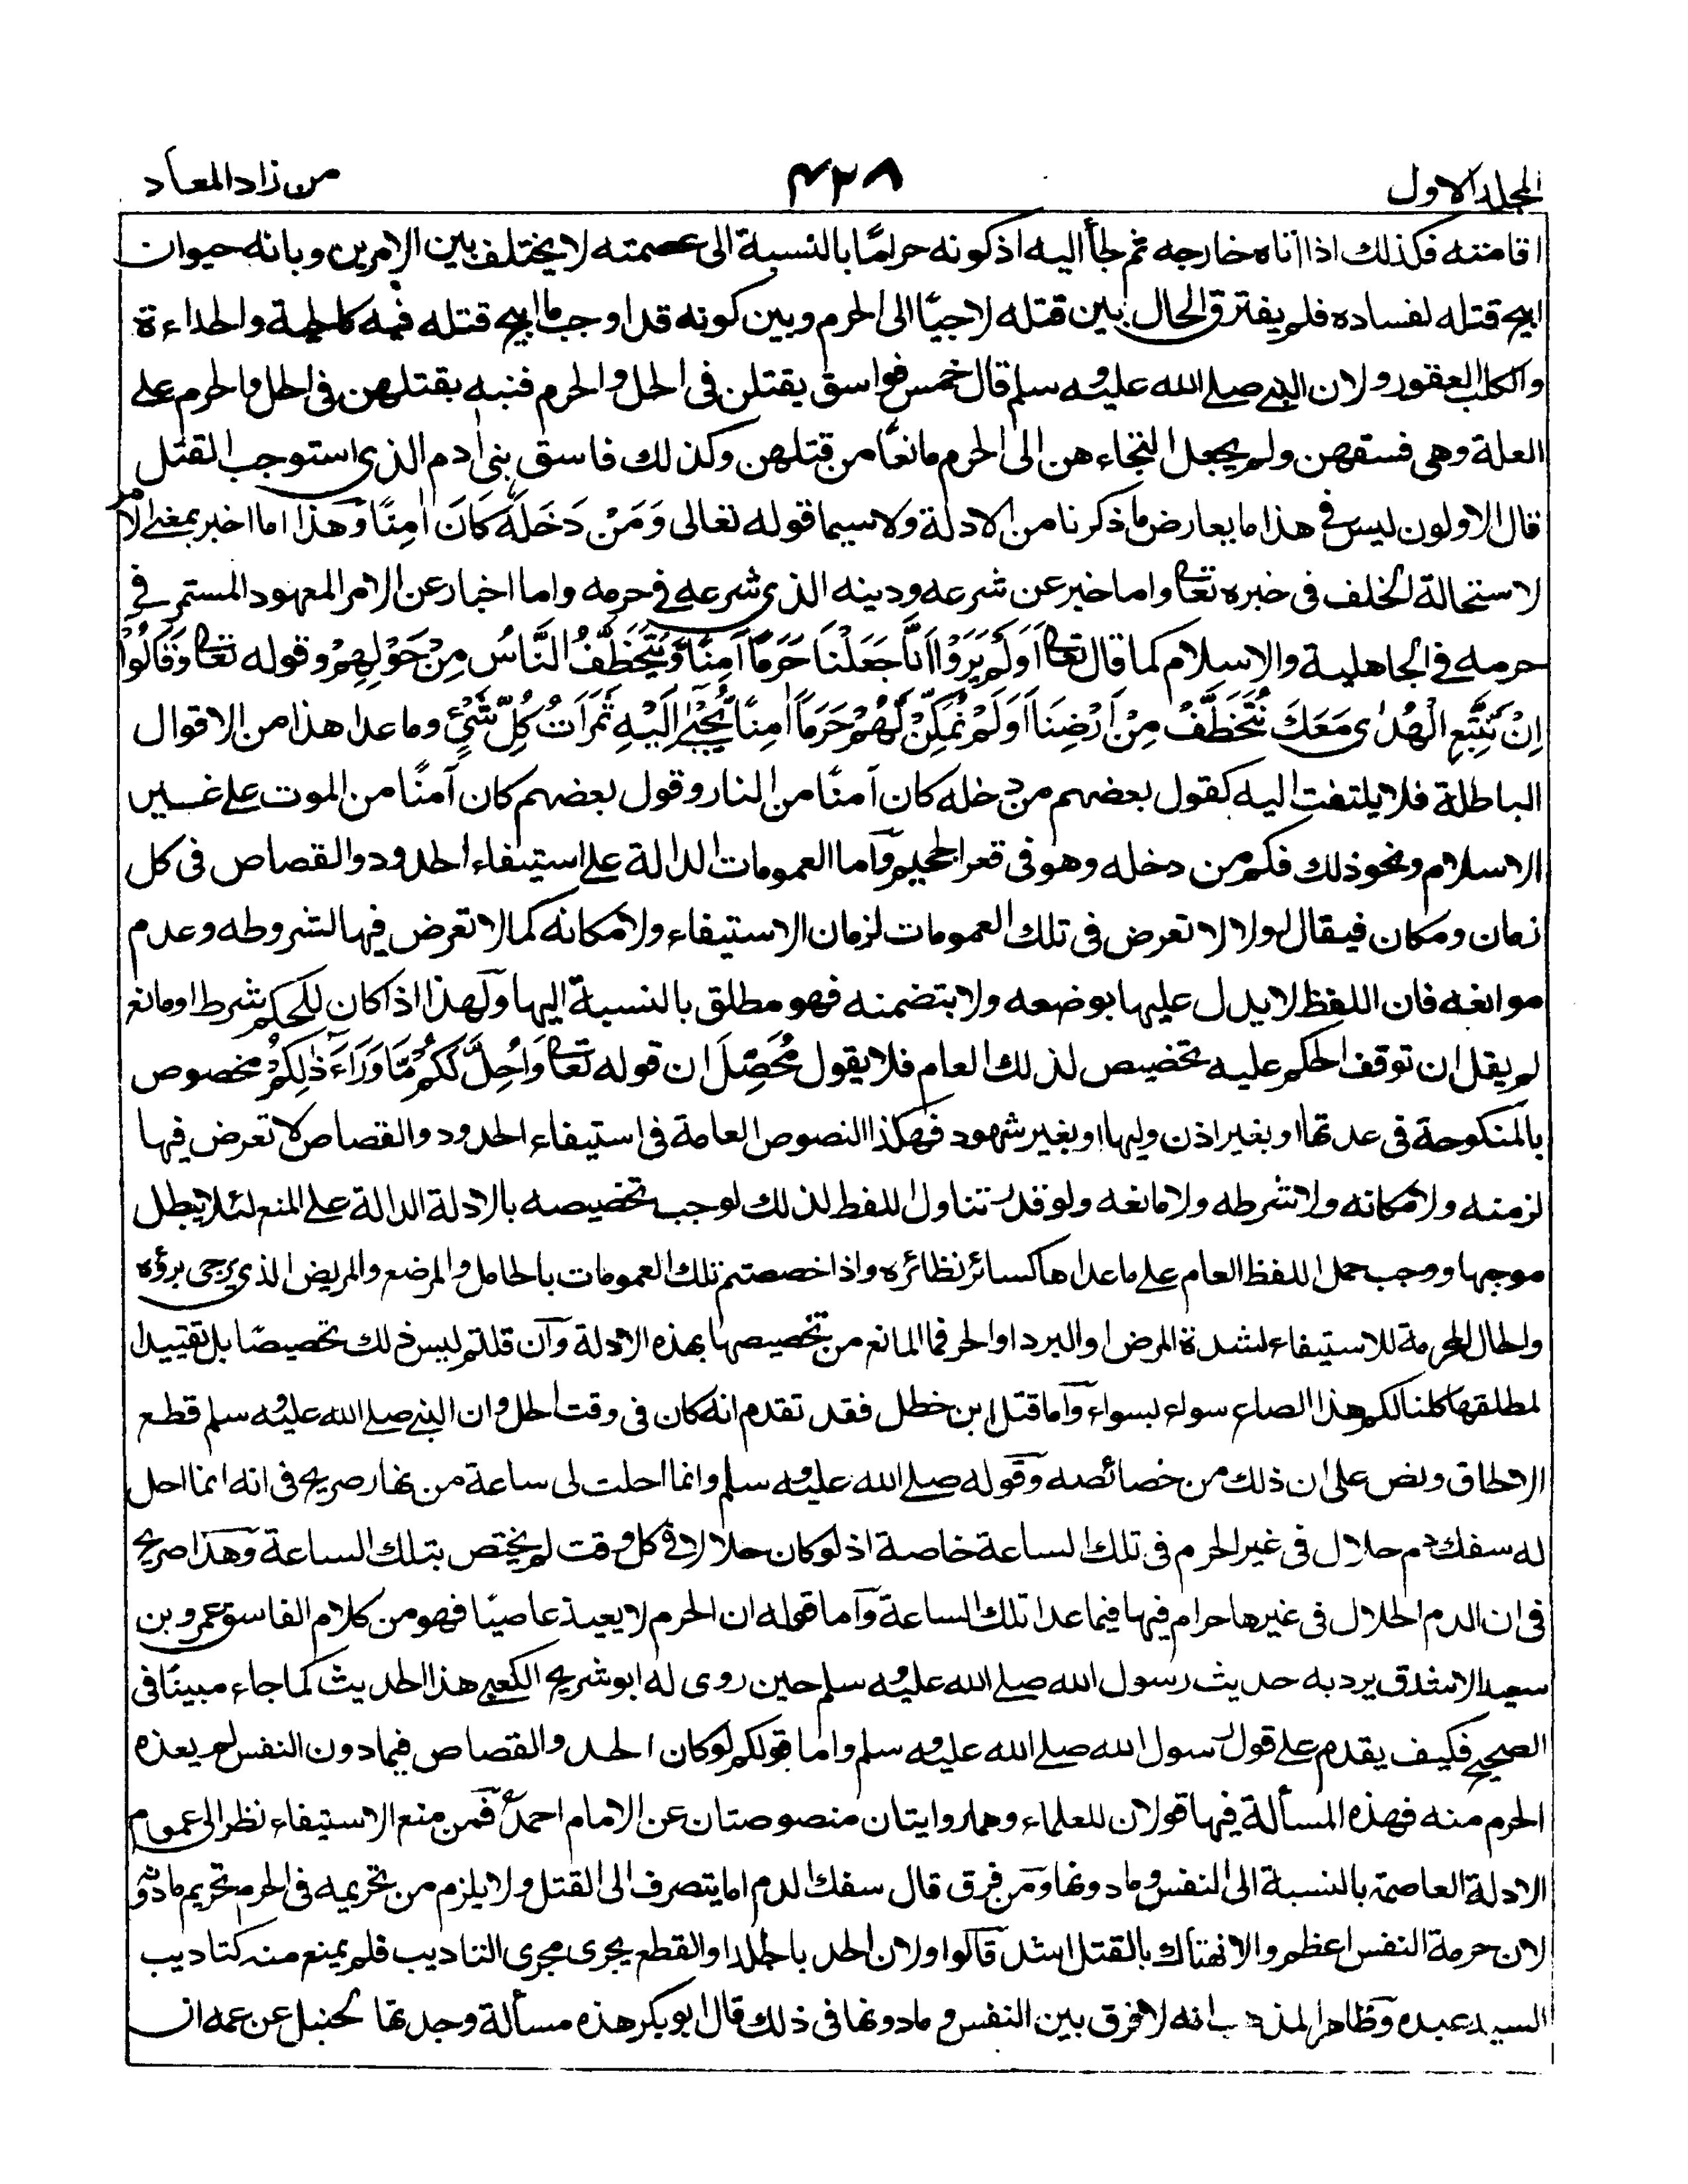 المجلد الاول
٤٢٨
من زاد المعاد
اقامته فكذلك اذا اتاه خارجه ثم لجأ اليه اذ كونه حرامًا بالنسبة الى عصمته لا يختلف بين الامرين وبانه حيوان
ابيح قتله لفساده فلم يفترق الحال بين قتله لاجيًا الى الحرم وبين كونه قد اوجب ما ابيح قتله فيه كالحية والحداءة
والكلب العقور ولان النبي صلى الله عليه وسلم قال خمس فواسق يقتلن فى الحل والحرم فنبه بقتلهن فى الحل والحرم على
العلة وهى فسقهن ولم يجعل التجاءهن الى الحرم مانعًا من قتلهن وكذلك فاسق بنى ادم الذى استوجب القتل
قال الاولون ليس في هذا ما يعارض ما ذكرنا من الادلة ولا سيما قوله تعالى وَمَنْ دَخَلَهٗ كَانَ اٰمِنًا وهذا اما اخبر بمعنى الامر
لاستحالة الخلف فى خبره تعا واما خبر عن شرعه ودينه الذى شرعه في حرمه واما اخبار عن الامر المعهود المستمر في
حرمه في الجاهلية والاسلام كما قال تعا اَوَلَمْ يَرَوْا اَنَّا جَعَلْنَا حَرَمًا آمِنًا وَّيُتَخَطَّفُ النَّاسُ مِنْ حَوْلِهِمْ وقوله تعا وَقَالُوْا
اِنْ نَتَّبِعِ الْهُدٰى مَعَكَ نُتَخَطَّفْ مِنْ اَرْضِنَا اَوَلَمْ نُمَكِّنْ لَّهُمْ حَرَمًا اٰمِنًا يُّجْبٰى اِلَيْهِ ثَمَرَاتُ كُلِّ شَيْءٍ وما عدا هذا من الاقوال
الباطلة فلا يلتفت اليه كقول بعضهم من دخله كان آمنًا من النار وقول بعضهم كان آمنًا من الموت على غير
الاسلام ونحو ذلك فكم من دخله وهو فى قعر الجحيم وآما العمومات الدالة على استيفاء الحدود والقصاص فى كل
زمان ومكان فيقال اولا لا تعرض فى تلك العمومات لزمان الاستيفاء ولا مكانه كما لا تعرض فيها لشروطه وعدم
موانعه فان اللفظ لا يدل عليها بوضعه ولا بتضمنه فهو مطلق بالنسبة اليها ولهذا اذا كان للحكم شرط او مانع
لم يقل ان توقف الحكم عليه تخصيص لذلك العام فلا يقول مُحَصِّلَ ان قوله تعا وَاُحِلَّ لَكُمْ مَّا وَرَاءَ ذٰلِكُمْ مخصوص
بالمنكوحة فى عدتها او بغير اذن وليها او بغير شهود فهكذا النصوص العامة فى استيفاء الحدود والقصاص لا تعرض فيها
لزمنه ولا مكانه ولا شرطه ولا مانعه ولو قدر تناول اللفظ لذلك لوجب تخصيصه بالادلة الدالة على المنع لئلا يبطل
موجبها ووجب حمل اللفظ العام على ما عداها كسائر نظائره واذا خصصتم تلك العمومات بالحامل والمرضع والمريض الذى يرجى برؤه
والحال المحرمة للاستيفاء لشدة المرض او البرد او الحر فما المانع من تخصيصها بهذه الادلة وآن قلتم ليس ذلك تخصيصًا بل تقييدا
لمطلقها كلنا لكم هذا الصاع سواء بسواء وآما قتل ابن خطل فقد تقدم انه كان فى وقت الحل وان النبي صلى الله عليه وسلم قطع
الالحاق ونص على ان ذلك من خصائصه وقوله صلى الله عليه وسلم وانما احلت لى ساعة من نهار صريح فى انه انما احل
له سفك دم حلال فى غير الحرم فى تلك الساعة خاصة اذ لو كان حلالا في كل وقت لم يختص بتلك الساعة وهذا صريح
فى ان الدم الحلال فى غيرها حرام فيها فيما عدا تلك الساعة وآما قوله ان الحرم لا يعيذ عاصيًا فهو من كلام الفاسق عمرو بن
سعيد الاشدق يرد به حديث رسول الله صلى الله عليه وسلم حين روى له ابو شريح الكعبي هذا الحديث كما جاء مبينًا فى
الصحيح فكيف يقدم على قول رسول الله صلى الله عليه وسلم واما قولكم لو كان الحد والقصاص فيما دون النفس لم يعذه
الحرم منه فهذه المسألة فيها قولان للعلماء وهما روايتان منصوصتان عن الامام احمد فمن منع الاستيفاء نظر الى عموم
الادلة العاصمة بالنسبة الى النفس وما دونها ومن فرق قال سفك الدم اما يتصرف الى القتل ولا يلزم من تحريمه فى الحرم تحريم ما دونه
لان حرمة النفس اعظم والانهتاك بالقتل اشد قالوا ولان الحد بالجلد او القطع يجرى مجرى التاديب فلم يمنع منه كتاديب
السيد عبده وظاهر المذهب انه لا فرق بين النفس وما دونها فى ذلك قال ابو بكر هذه مسألة وجدتها لحنبل عن عمه ان